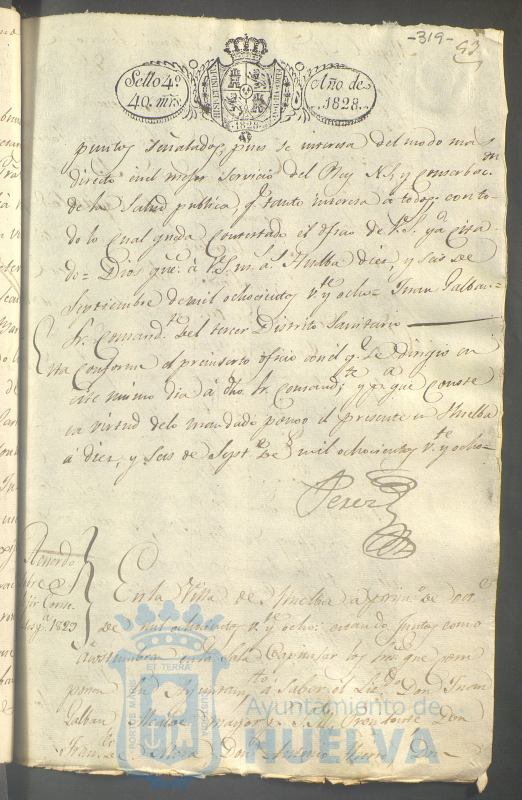 -319-
Sello 4º
40. mrs.
Año de
1828.
1828
puntos señalados, pues se interesa del modo mas
directo en el mejor servicio del Rey N. S. y conserbon.
de la Salud publica, qe. tanto interesa à todos, con to-
do lo cual queda contestado el oficio de V.S. ya cita-
do= Dios gue. à V.S. m. as. Huelba diez, y seis de
Septiembre de mil ochocientos vte. y ocho= Juan Galban=
Sr. Comandte. del tercer Distrito Sanitario
Esta conforme al preinserto oficio con el qe. se dirigio en
este mismo dia à dho. Sr. Comandte. y pa. que conste
en virtud de lo mandado pongo el presente en Huelba
à diez, y seis de Septe. de mil ochocientos vte. y ocho=
Perez
Acuerdo
sobre
elejir Conse-
jes pa. 1829
En la Villa de Huelba a prime. de oct.
de mil ochocientos vte. y ocho: estando juntos como
acostumbran en la sala Capitular los Sres. que com
ponen su Ayuntamto. à saber el Lizdo. Don Juan
Galban Alcalde mayor pr. S.M. Presidente Don
Franco. de Don Antonio Don
PORTUS MARIS
ET TERRÆ
CUSTODIA
Ayuntamiento de
HUELVA